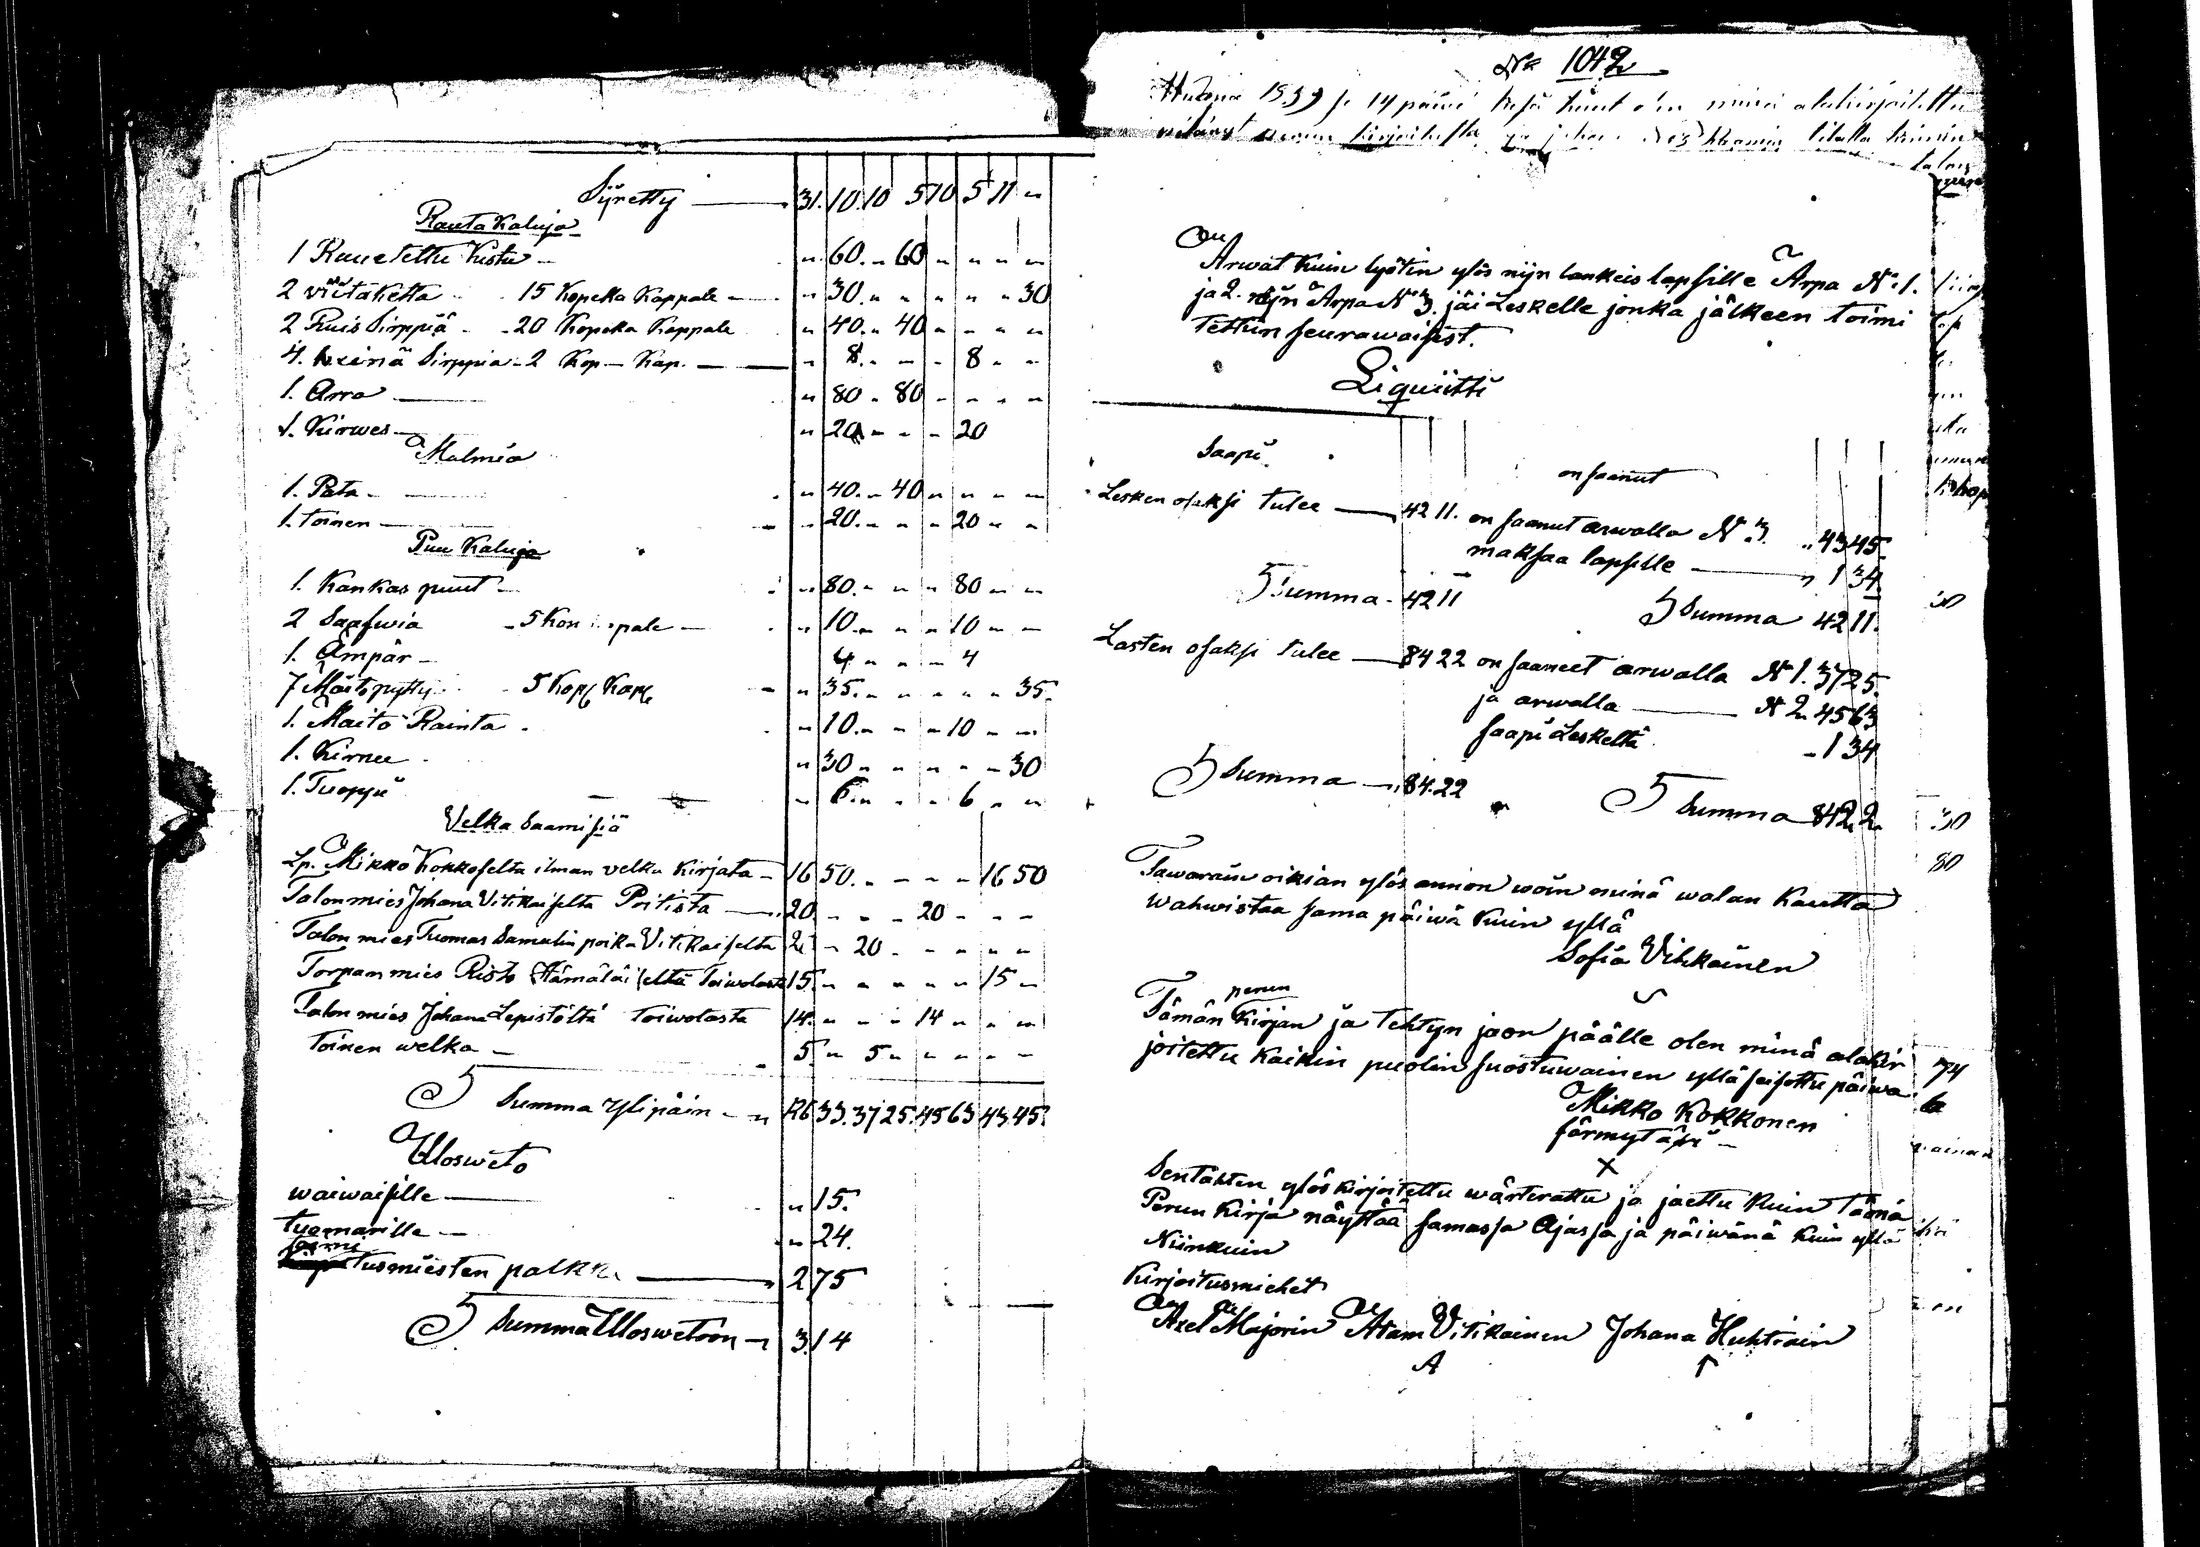 Siiretty — 31. 10. 10 5 10 5 11 "
Rauta Kaluja
1 Rauetettu Kistu — " 60. " 60 " " " "
2 viitaketta 15 Kopeka Kappale — " 30. " " " " " 30
2 Ruis Sirppiä 20 Kopeka Kappale " 40. " 40 " " " "
4. heinä Sirppia - 2 Kop — Kap. — " 8. " " " 8 " "
1. Arra — " 80 " 80 " " " "
1. Kirwes — " 20 " " " 20
Malmia
1. Pata — " 40. " 40 " " " "
1. toinen — " 20. " " " 20 " "
Puu Kaluja
1. Kankas puut — " 80. " " " 80 " "
2 Saafwia - 5 Kop pale — " 10. " " " 10 " "
1. Ämpär — 4 " " " 4
7 Maitopytty - 5 Kop Kap " 35. " " " " " 35.
1. Maito Rainta " 10. " " " 10 " "
1. Kirnu " 30 " " " " " 30
1. Tuoppi " 6. " " " 6 " "
Velka Saamisia
Lp. Mikko Kokkoselta ilman velka kirjata — 16 50. " " " " 16 50
Talonmies Johana Vitikaiselta Poitista — 20 " " " 20 " " "
Talon mies Tuomas Samulin poika Vitikaiselta 20 " 20 " " " " "
Torpan mies Risto Hämäläiseltä Toiwolasta 15. " " " " " 15 "
Talon mies Johana Lepistöltä Toiwolasta 14. " " " 14 " " "
Toinen welka — 5. " 5 " " " " "
Summa Ylipäin — " 126 33. 37 25. 45 63 43 45.
Ulosweto
waiwaisille — " 15.
tuomarille — " 24.
toimi
tusmiesten palkka — 2 75
Summa Uloswetoon — 3. 14
No 1042
Wuonna 1839 14 päiwä kesä kuut olen minä alakirjoitettu
Arwat kuin lyötin ylös niin lankeis lapsille Arpa No 1.
ja 2. niin Arpa No 3. jäi Leskelle jonka jälkeen toimi
tettin seurawaisest.
Liquiitti
Saapi on saanut
Lesken osaksi tulee — 42 11. on saanut arwalla No 3. " 43 45.
maksaa lapsille — " 1 34.
Summa - 42 11 Summa 42 11.
Lasten osaksi tulee — 84 22 on saaneet arwalla No 1. 37 25.
ja arwalla — No 2. 45 63
saapi Leskeltä - 1 34
Summa — 84. 22 Summa 84 22.
Tawarain oikian ylös annon woin minä walan kautta
wahwistaa sama päiwä kuin yllä
Sofia Vitikainen
perun
Tämän Kirjan ja tehtyn jaon päälle olen minä alakir
joitettu kaikin puolin suostuwainen yllä seisottu päiwä
Mikko Kokkonen
förmytäri —
X
Sentähten ylöskirjoitettu wärterattu ja jaettu kuin tämä
Perun Kirja näyttää samassa Ajassa ja päiwänä kuin yllä
Niinkuin
Kirjoitusmiehet
Axel Majorin Atam Vitikainen Johana Huhtiain
A